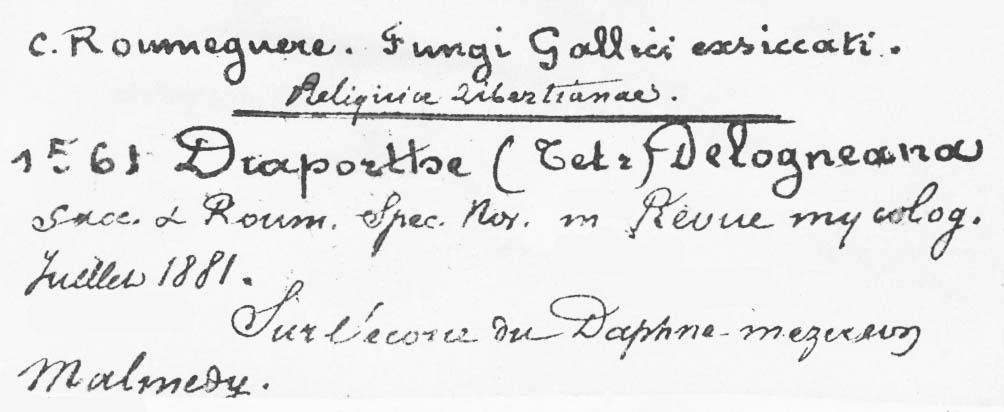 C. Roumeguere. Fungi Gallici exsiccati.
Reliquiae Libertianae.
1561 Diaporthe (Tetr) Delogneana
Sacc. & Roum. Spec. Nov. in Revue mycolog.
Juillet 1881.
Sur l'écorce du Daphne-mezereon
Malmedy.